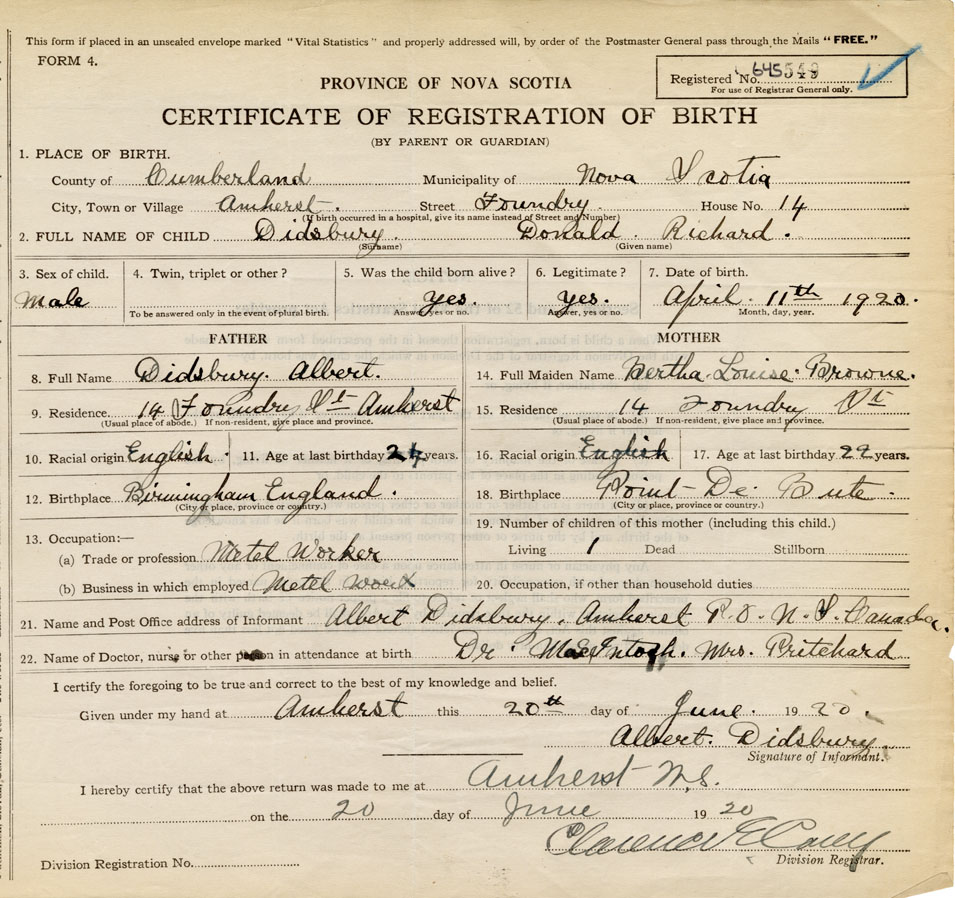 This form if placed in an unsealed envelope marked "Vital Statistics" and properly addressed will, by order of the Postmaster General pass through the Mails "FREE."
FORM 4.
Registered No. 645549
For use of Registrar General only.
PROVINCE OF NOVA SCOTIA
CERTIFICATE OF REGISTRATION OF BIRTH
(BY PARENT OR GUARDIAN)
1. PLACE OF BIRTH.
County of Cumberland Municipality of Nova Scotia
City, Town or Village Amherst. Street Foundry. House No. 14
(If birth occurred in a hospital, give its name instead of Street and Number)
2. FULL NAME OF CHILD Didsbury. Donald. Richard.
(Surname) (Given name)
3. Sex of child. 4. Twin, triplet or other? 5. Was the child born alive? 6. Legitimate? 7. Date of birth.
Male Yes. Yes. April. 11th 1920.
To be answered only in the event of plural birth. Answer yes or no. Answer, yes or no. Month, day, year.
FATHER MOTHER
8. Full Name Didsbury. Albert. 14. Full Maiden Name Bertha. Louise. Browne.
9. Residence. 14 Foundry St Amherst 15. Residence 14 Foundry St
(Usual place of abode.) If non-resident, give place and province. (Usual place of abode.) If non-resident, give place and province.
10. Racial origin English. 11. Age at last birthday 24 years. 16. Racial origin English 17. Age at last birthday 22 years.
12. Birthplace Birmingham England. 18. Birthplace Point-De. Bute.
(City or place, province or country.) (City or place, province or country.)
13. Occupation:— 19. Number of children of this mother (including this child.)
(a) Trade or profession Metel Worker Living 1 Dead Stillborn
(b) Business in which employed Metel work 20. Occupation, if other than household duties
21. Name and Post Office address of Informant Albert Didsbury. Amherst P.O. N.S. Canada.
22. Name of Doctor, nurse or other person in attendance at birth Dr. MacIntosh. Mrs. Pritchard
I certify the foregoing to be true and correct to the best of my knowledge and belief.
Given under my hand at Amherst this 20th day of June. 1920.
Albert. Didsbury.
Signature of Informant.
I hereby certify that the above return was made to me at Amherst N.S.
on the 20 day of June 1920
Clarence E
Division Registration No. Division Registrar.